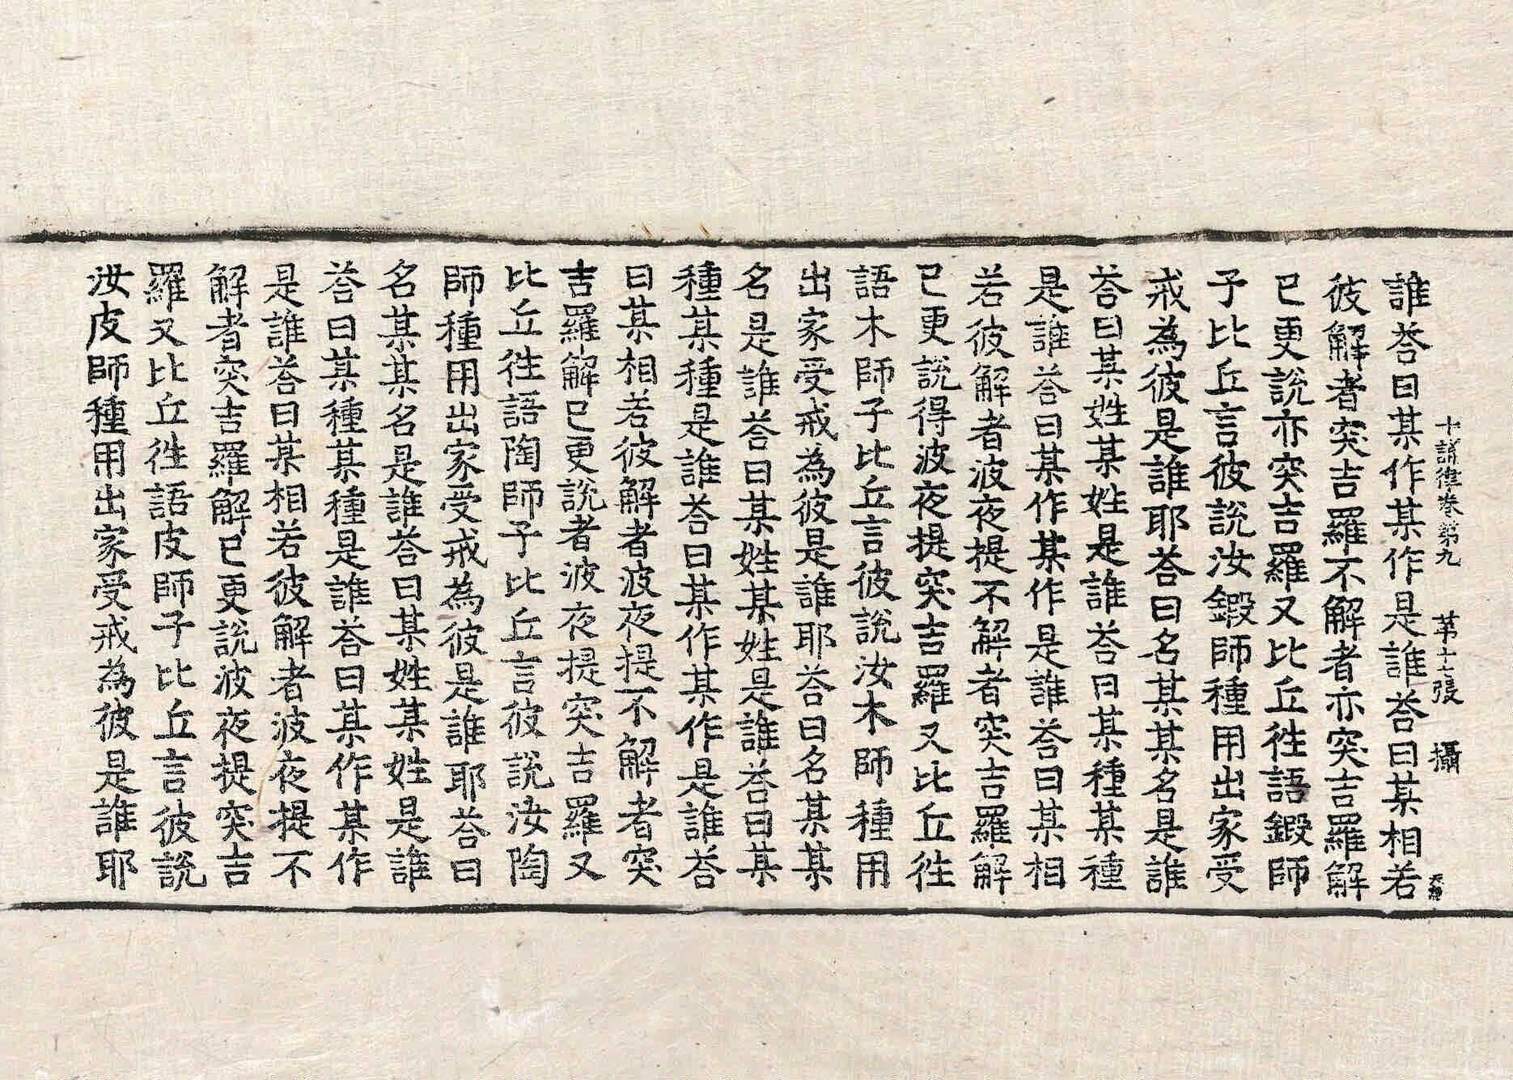 十誦律卷第九 第十七張 攝
誰荅曰某作某作是誰荅曰某相若
彼解者突吉羅不解者亦突吉羅解
已更說亦突吉羅又比丘往語鍛師
子比丘言彼說汝鍛師種用出家受
戒為彼是誰耶荅曰名某某名是誰
荅曰某姓某姓是誰荅曰某種某種
是誰荅曰某作某作是誰荅曰某相
若彼解者波夜提不解者突吉羅解
已更說得波夜提突吉羅又比丘往
語木師子比丘言彼說汝木師種用
出家受戒為彼是誰耶荅曰名某某
名是誰荅曰某姓某姓是誰荅曰某
種某種是誰荅曰某作某作是誰荅
曰某相若彼解者波夜提不解者突
吉羅解已更說者波夜提突吉羅又
比丘往語陶師子比丘言彼說汝陶
師種用出家受戒為彼是誰耶荅曰
名某某名是誰荅曰某姓某姓是誰
荅曰某種某種是誰荅曰某作某作
是誰荅曰某相若彼解者波夜提不
解者突吉羅解已更說波夜提突吉
羅又比丘往語皮師子比丘言彼說
汝皮師種用出家受戒為彼是誰耶